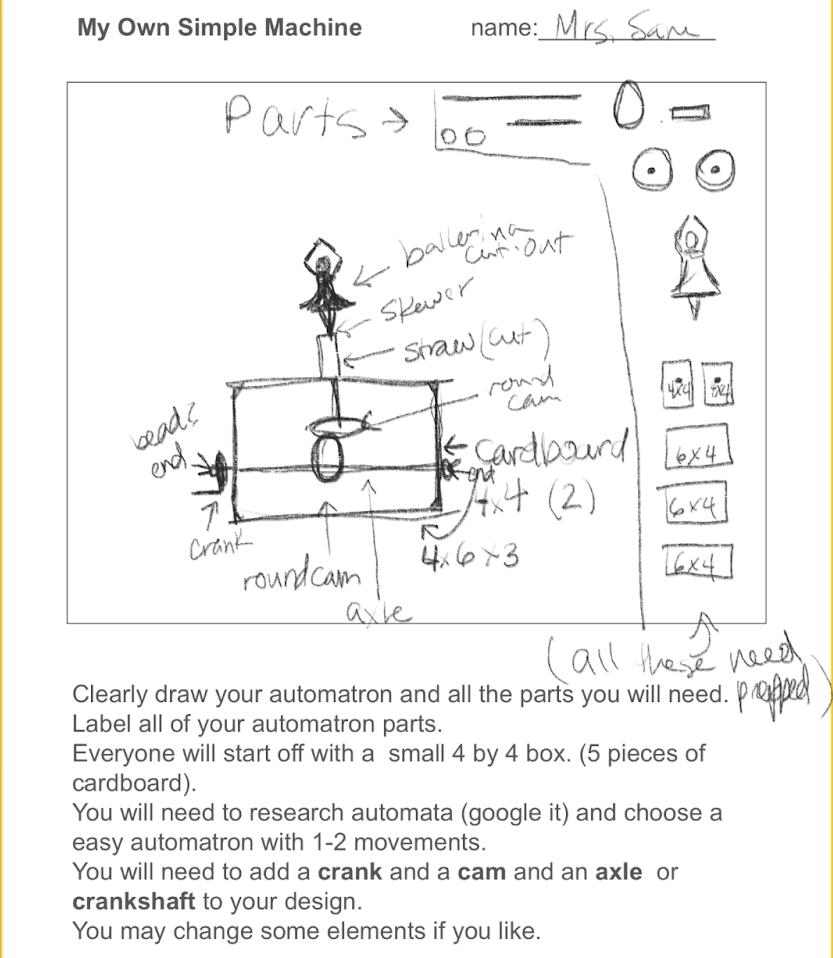 My Own Simple Machine name: Mrs. Sam
Parts →
ballerina
cut-out
skewer
straw (cut)
round
cam
bead?
end
Cardboard
end
4x4 (2)
4x6x3
crank
round cam
axle
4x4 4x4
6x4
6x4
6x4
(all these need
prepped)
Clearly draw your automatron and all the parts you will need.
Label all of your automatron parts.
Everyone will start off with a small 4 by 4 box. (5 pieces of
cardboard).
You will need to research automata (google it) and choose a
easy automatron with 1-2 movements.
You will need to add a crank and a cam and an axle or
crankshaft to your design.
You may change some elements if you like.